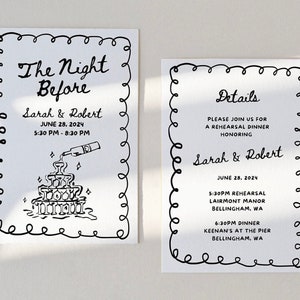 The Night
Before
Sarah & Robert
JUNE 28, 2024
5:30 PM - 8:30 PM
Details
PLEASE JOIN US FOR
A REHEARSAL DINNER
HONORING
Sarah & Robert
JUNE 28, 2024
5:30PM REHEARSAL
LAIRMONT MANOR
BELLINGHAM, WA
6:30PM DINNER
KEENAN'S AT THE PIER
BELLINGHAM, WA